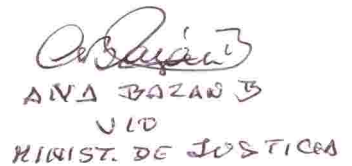 ANA BAZAN B
VLO
MINIST. DE JUSTICIA